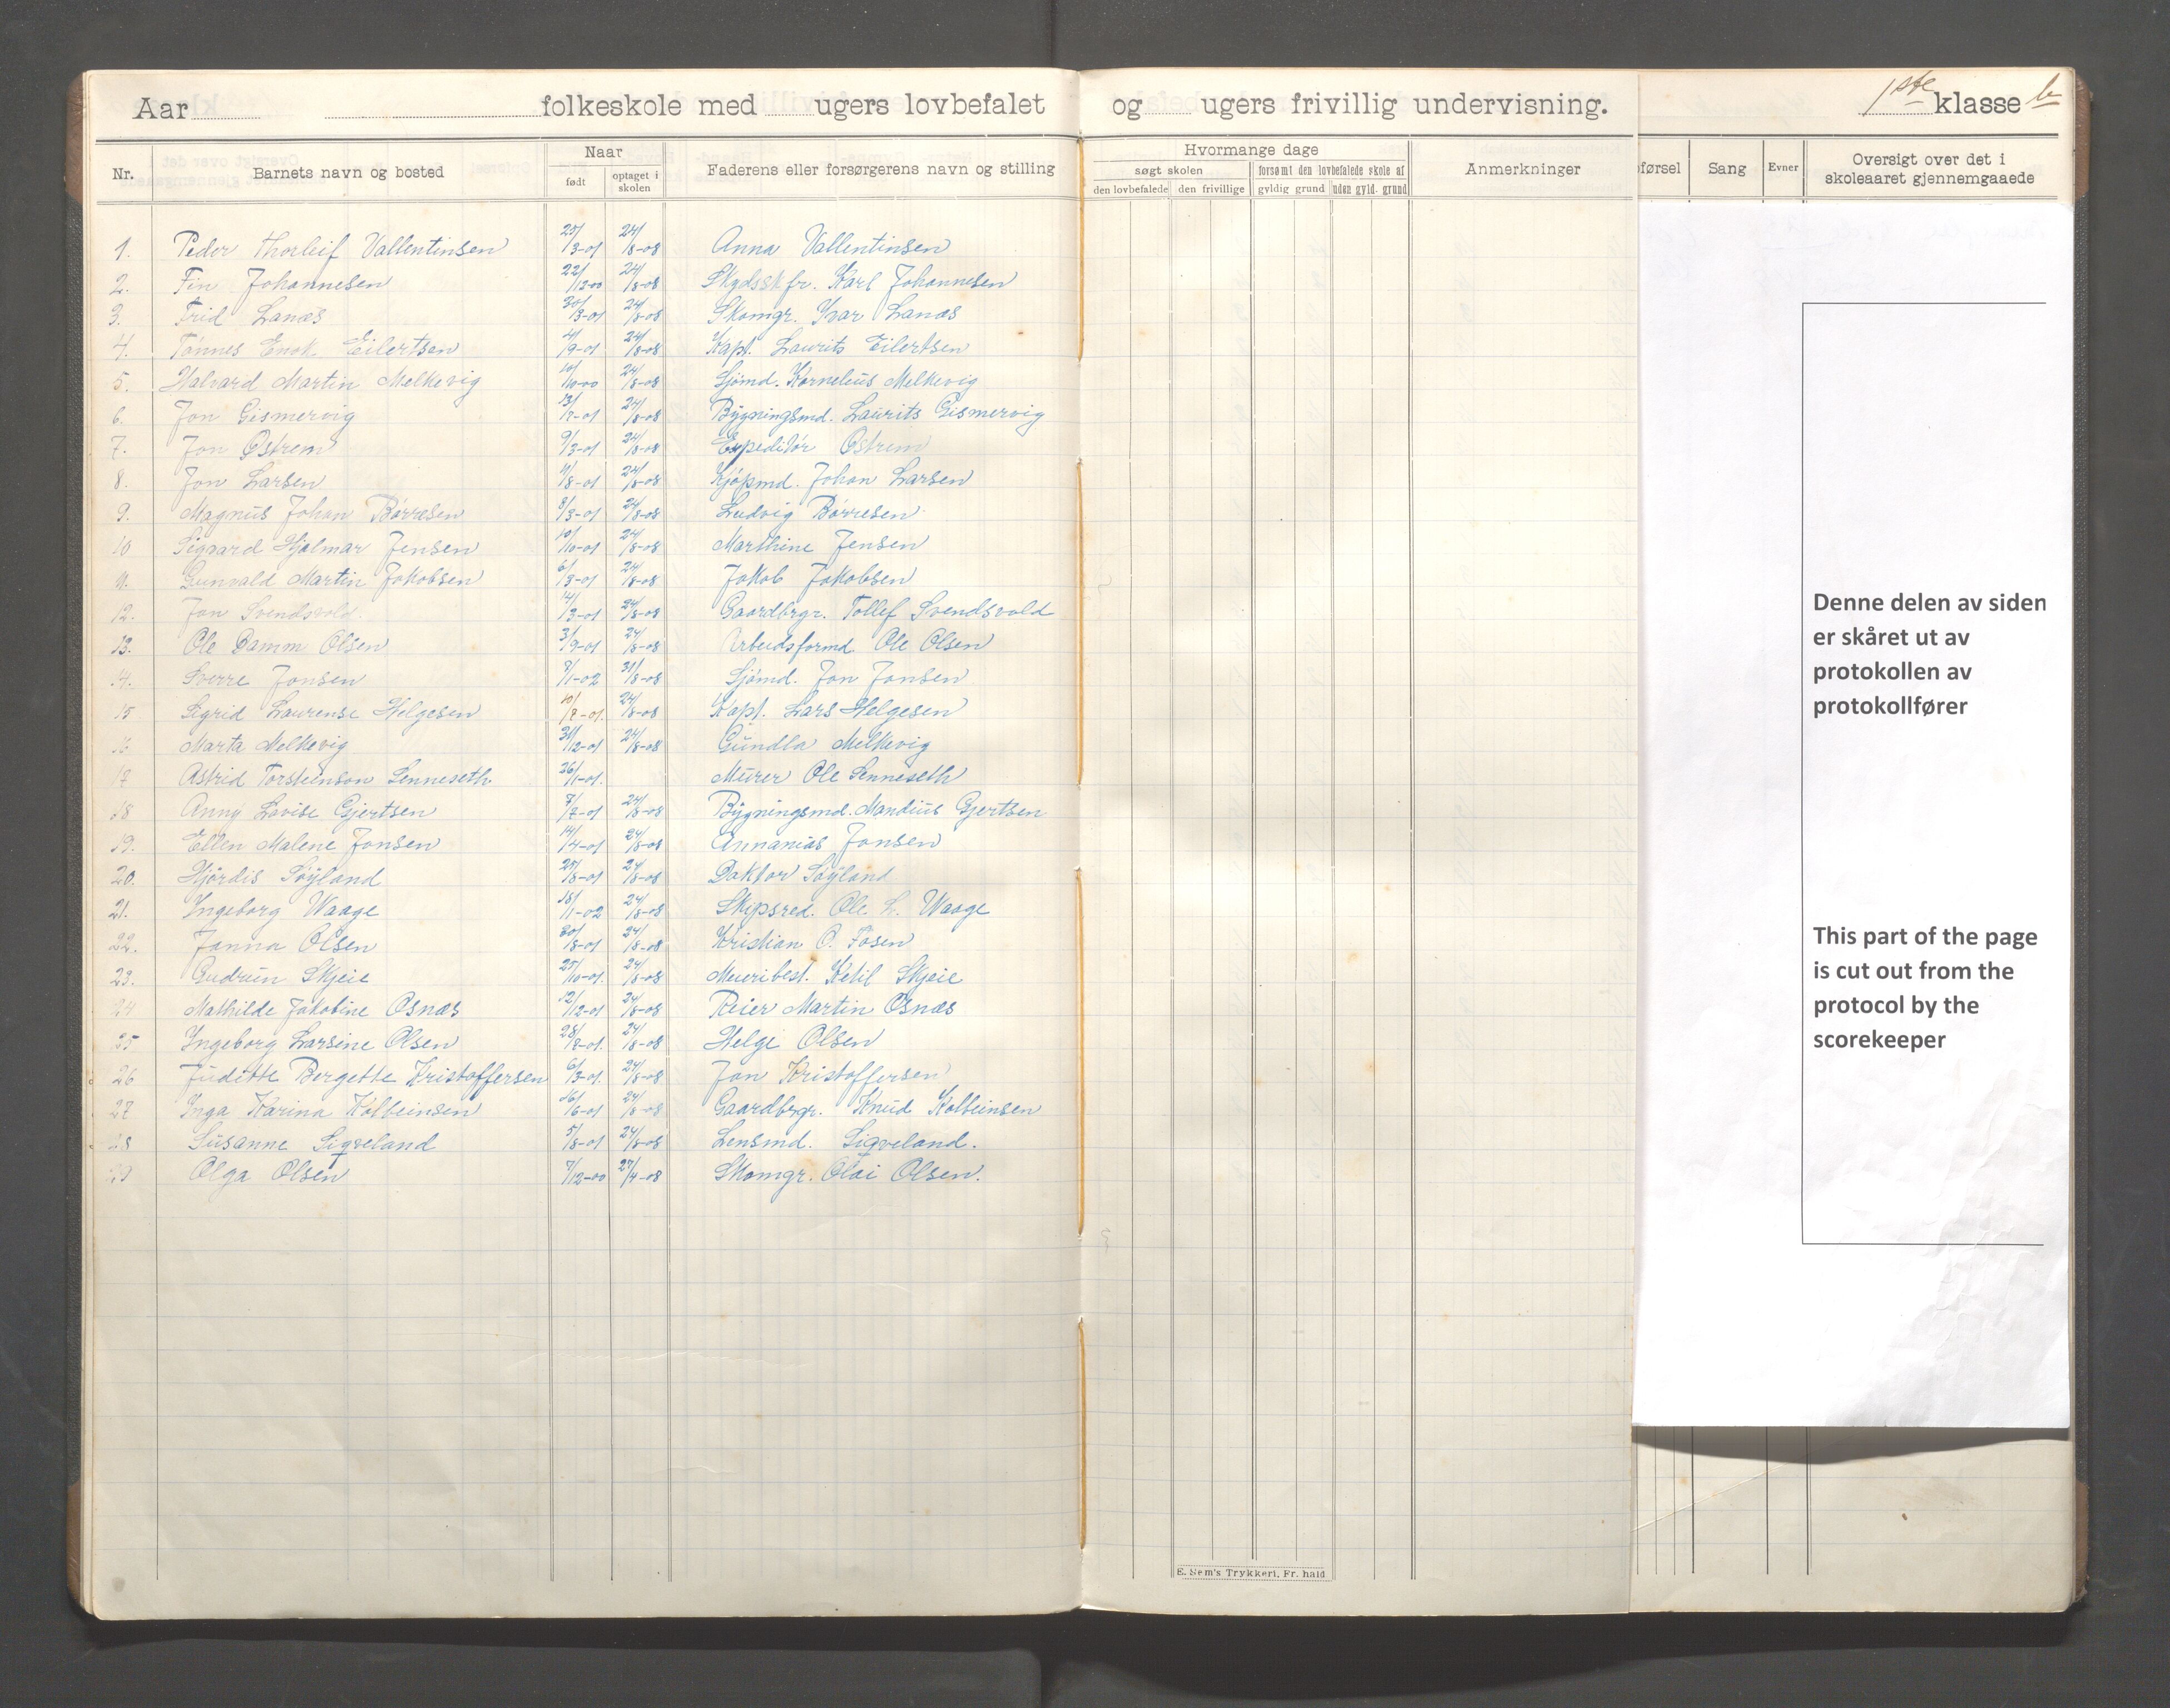 Aar folkeskole med ugers lovbefalet og ugers frivillig undervisning. 1ste klasse b
Nr. Barnets navn og bosted Naar født optaget i skolen Faderens eller forsørgerens navn og stilling
Hvormange dage
søgt skolen forsømt den lovbefalede skole af
den lovbefalede den frivillige gyldig grund uden gyld. grund
Anmerkninger
førsel Sang Evner Oversigt over det i skoleaaret gjennemgaaede
1. Peder Thorleif Vallentinsen 25/3-01 24/8-08 Anna Vallentinsen
2. Fin Johannesen 22/12-00 24/8-08 Skydsskfr. Karl Johannesen
3. Frid Lanæs 30/3-01 24/8-08 Skomgr. Ivar Lanæs
4. Tönnes Enok Eilertsen 4/9-01 24/8-08 Kapt. Laurits Eilertsen
5. Halvard Martin Melkevig 10/10-00 24/8-08 Sjömd. Kornelius Melkevig
6. Jon Gismervig 13/7-01 24/8-08 Bygningsmd. Laurits Gismervig
7. Jon Östrem 9/3-01 24/8-08 Expeditör Östrem
8. Jon Larsen 11/8-01 24/8-08 Kjöpmd. Johan Larsen
9. Magnus Johan Börresen 8/3-01 24/8-08 Ludvig Börresen
10 Sigvard Hjalmar Jensen 10/10-01 24/8-08 Marthine Jensen
11. Gunvald Martin Jakobsen 6/3-01 24/8-08 Jakob Jakobsen
12. Jon Svendsvold 14/3-01 24/8-08 Gaardbrgr. Tollef Svendsvold
13. Ole Damm Olsen 3/9-01 24/8-08 Arbeidsformd. Ole Olsen
14. Sverre Jonsen 8/1-02 31/8-08 Sjömd. Jon Jonsen
15 Sigrid Laurense Helgesen 10/7-01. 24/8-08 Kapt. Lars Helgesen
16 Marta Melkevig 31/12-01 24/8-08 Gundla Melkevig
17 Astrid Torsteinson Lenneseth 26/1-01. Murer Ole Lenneseth
18 Anny Lovise Gjertsen 7/7-01 24/8-08 Bygningsmd. Mandius Gjertsen
19. Ellen Malene Jonsen 14/4-01 24/8-08 Annanias Jonsen
20. Hjördis Söyland 25/8-01 24/8-08 Doktor Söyland
21. Ingeborg Waage 18/1-02 24/8-08 Skipsred. Ole L. Waage
22. Janna Olsen 30/8-01 24/8-08 Kristian O. Fosen
23. Gudrun Skjeie 25/10-01. 24/8-08 Meieribest. Ketil Skjeie
24 Mathilde Jakobine Osnæs 12/12-01 24/8-08 Reier Martin Osnæs
25 Ingeborg Larsine Olsen 28/7-01. 24/8-08 Helge Olsen
26 Juditte Bergette Kristoffersen 6/3-01. 24/8-08 Jon Kristoffersen
27 Inga Karina Kolbeinsen 26/6-01 24/8-08 Gaardbrgr. Knud Kolbeinsen
28 Susanne Sigveland 5/8-01 24/8-08 Lensmd. Sigveland.
29 Olga Olsen 7/12-00 27/4-08 Skomgr. Olai Olsen.
Denne delen av siden
er skåret ut av
protokollen av
protokollfører
This part of the page
is cut out from the
protocol by the
scorekeeper
E. Sem's Trykkeri, Fr.hald